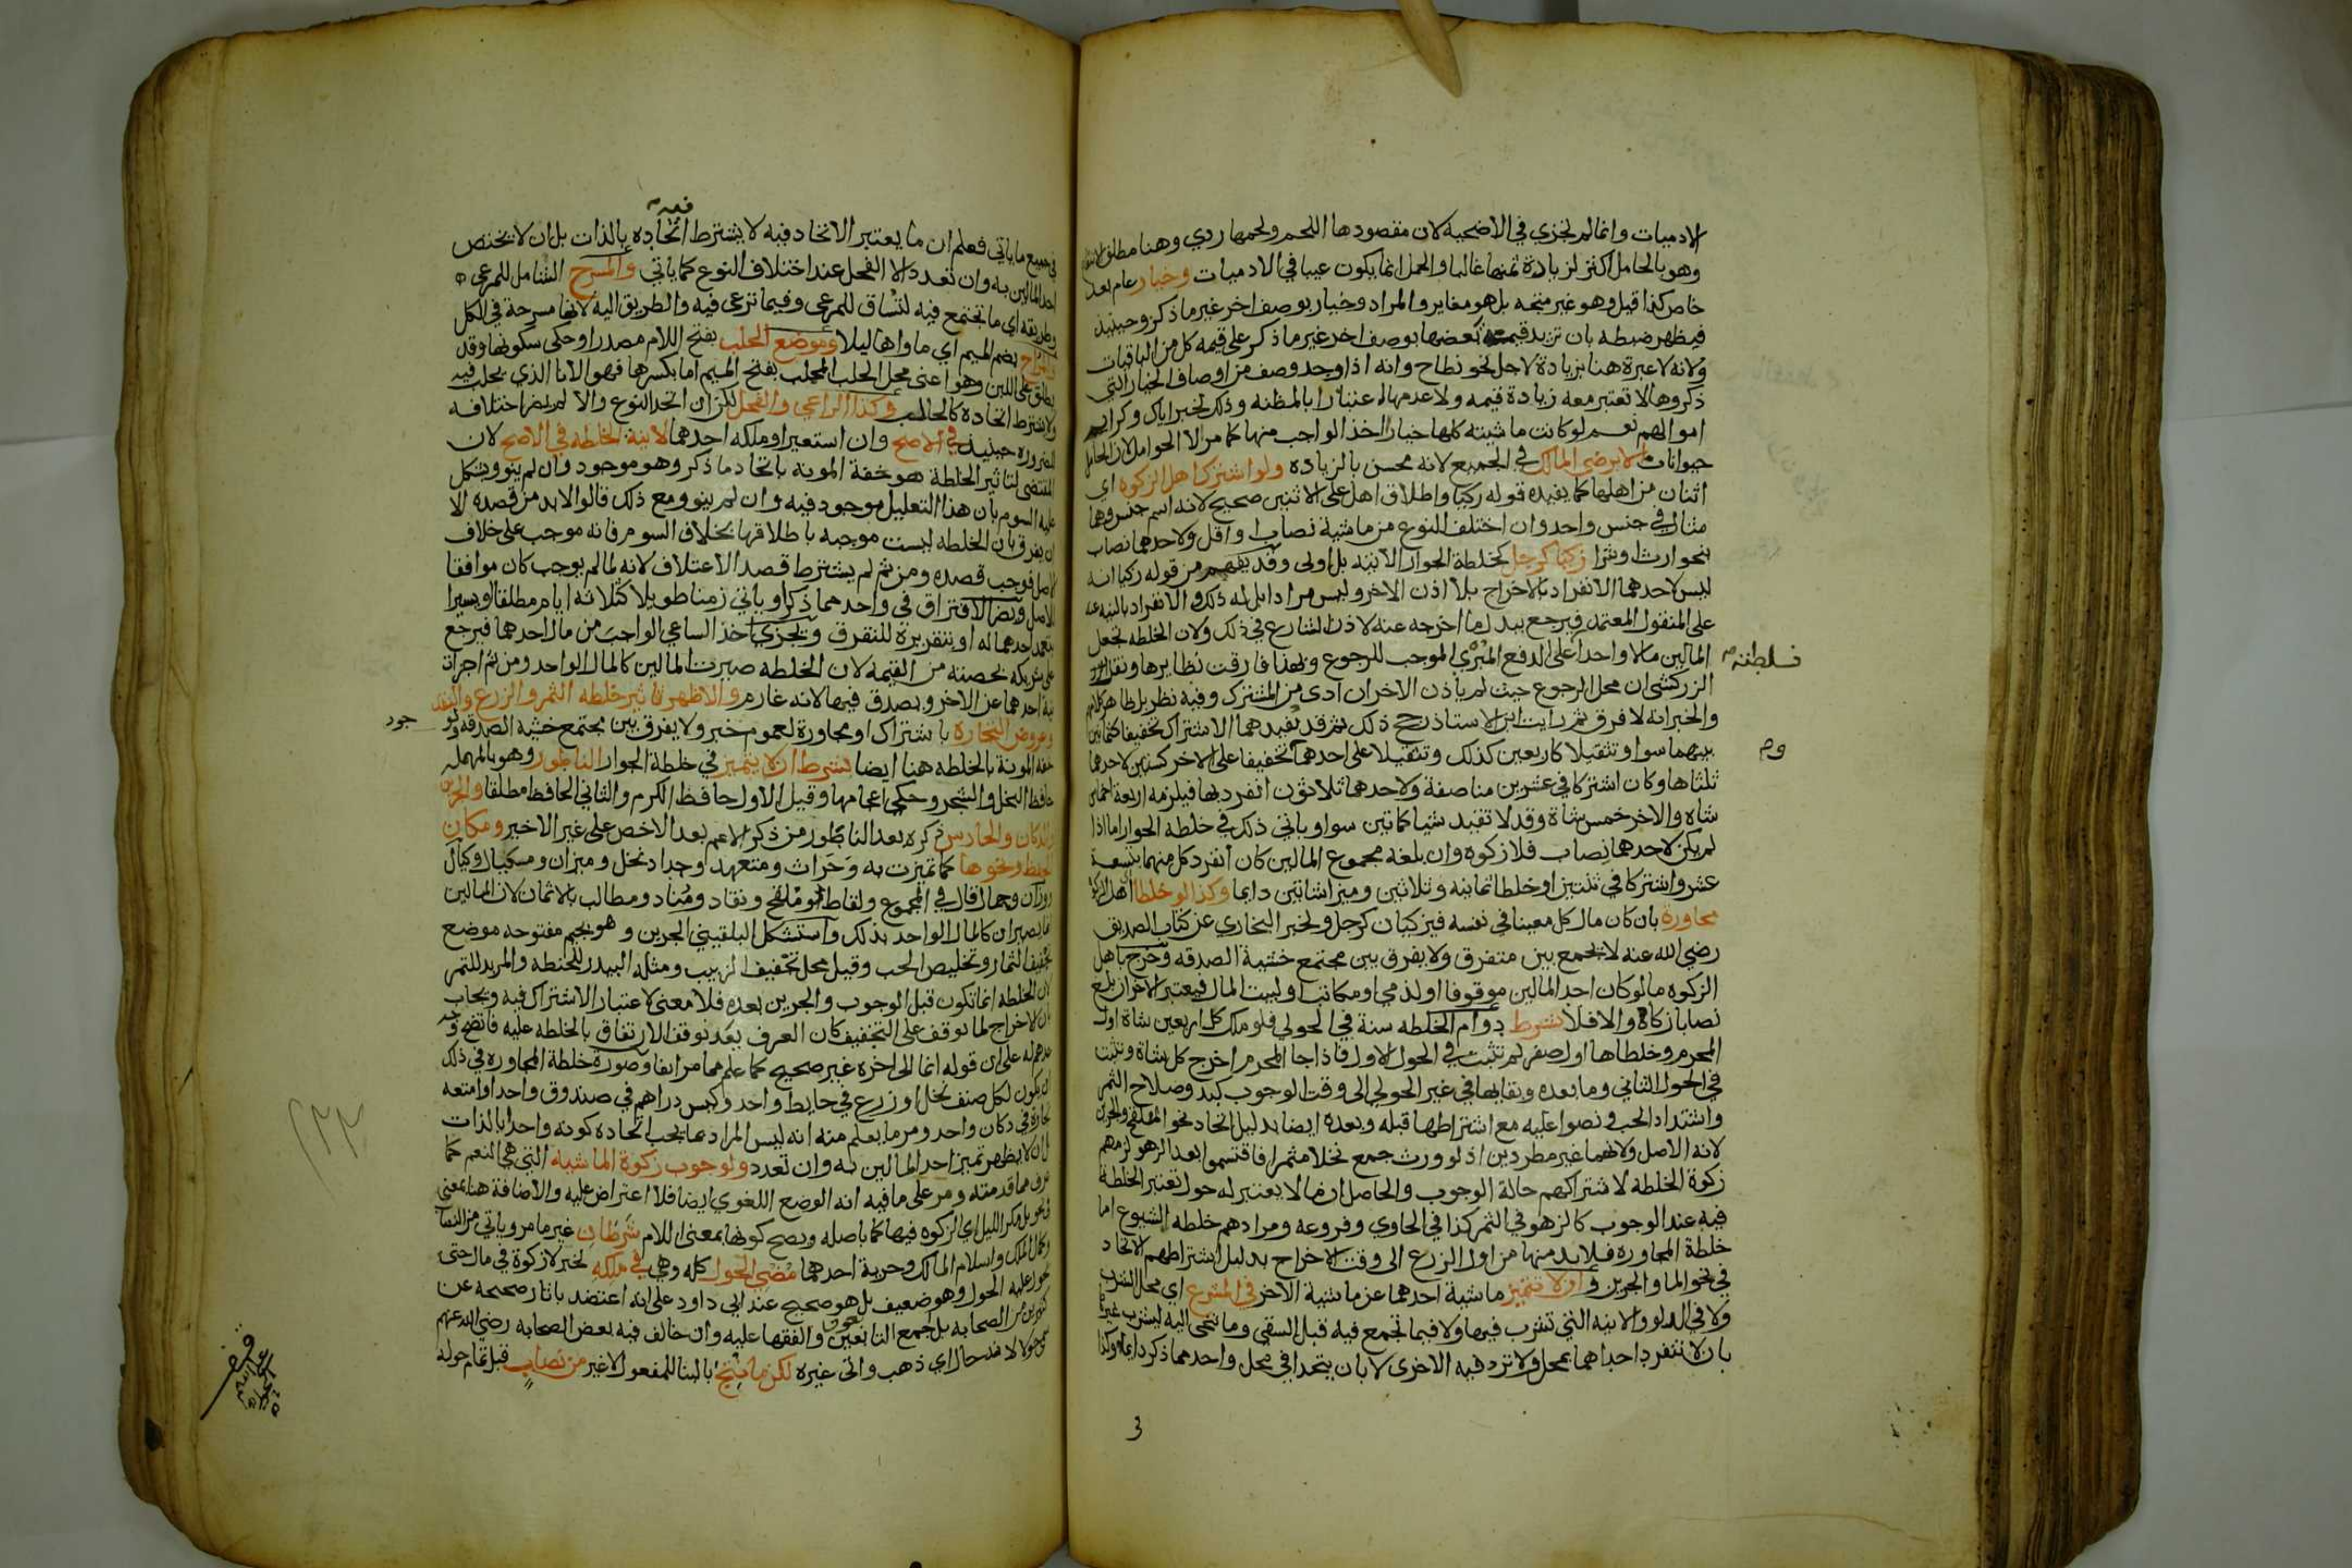 الادميات وانما لم تجزي في الاضحية لان مقصودها اللحم ولحمها ردي وهنا مطلق
وهو بالحامل اكثر لزيادة ثمنها غالبا والحمل انما يكون عيبا في الادميات وخيار عام بعد
خاص كذا قيل وهو غير متجه بل هو مغاير والمراد وخيار بوصف اخر غير ما ذكر وحينيذ
فيظهر ضبطه بان تزيد قيمة بعضها بوصف اخر غير ما ذكر على قيمة كل من الباقيات
ولانه لا عبرة هنا بزيادة لاجل نحو نطاح وانه اذا وجد وصف من اوصاف الخيار التي
ذكروها لا تعتبر معه زيادة قيمه ولا عدمها اعتبارا بالمظنه وذلك لخبر اياك وكرايم
اموالهم نعم لو كانت ماشيته كلها خيارا اخذ الواجب منها كما مر الا الحوامل لان الحامل
حيوانات الا برضى المالك في الجميع لانه محسن بالزياده ولو اشترك اهل الزكوه اي
اثنان من اهلها كما يفيده قوله زكيا واطلاق اهل على الاثنين صحيح لانه اسم جنس وهما
مثال في جنس واحد وان اختلف النوع من ماشية نصاب او اقل ولاحدهما نصاب
بنحو ارث او شرا زكيا كرجل كخلطة الجوار الاتيه بل اولى وقد يفهم من قوله زكيا انه
ليس لاحدهما الانفراد بالاخراج بلا اذن الاخر وليس مرادا بل له ذلك والانفراد بالنيه عنه
على المنقول المعتمد فيرجع ببدل ما اخرجه عنه لاذن الشارع في ذلك ولان الخلطه تجعل
المالين مالا واحدا فسلطته على الدفع المبري الموجب للرجوع وبهذا فارقت نظايرها ونقل
الزركشي ان محل الرجوع حيث لم ياذن الاخر ان ادى من المشترك وفيه نظر بل ظاهر كلامهم
والخبر انه لا فرق ثم رايت ابن الاستاذ رجح ذلك ثم قد تفيدهما الاشتراك تخفيفا كثمانين
بينهما سوا وتثقيلا كاربعين كذلك وتثقيلا على احدهما وتخفيفا على الاخر كستين لاحدهما
ثلثاها وكان اشتركا في عشرين مناصفة ولاحدهما ثلاثون انفرد بها فيلزمه اربعة اخماس
شاة والاخر خمس شاة وقد لا تفيد شيا كماتين سوا وياتي ذلك في خلطة الجوار اما اذا
لم يكن لاحدهما نصاب فلا زكوه وان بلغه مجموع المالين كان انفرد كل منهما بتسعة
عشر واشتركا في ثنتين او خلطا ثمانيه وثلاثين وميزا شاتين دايما وكذا لو خلطا
مجاورة بان كان مال كل معينا في نفسه فيزكيان كرجل ولخبر البخاري عن كتاب الصديق
رضي الله عنه لا يجمع بين متفرق ولا يفرق بين مجتمع خشية الصدقه وخرج باهل
الزكوه ما لو كان احد المالين موقوفا او لذمي او مكاتب او لبيت المال فيعتبر الاخر ان بلغ
نصابا زكاة والا فلا بشرط دوام الخلطه سنة في الحولي فلو ملك كل اربعين شاة اول
المحرم وخلطاها اول صفر لم تثبت في الحول الاول فاذا جا المحرم اخرج كل شاة وتثبت
في الحول الثاني وما بعده وبقايها في غير الحولي الى وقت الوجوب كبدو صلاح الثمر
واشتداد الحب ونصوا عليه مع اشتراطها قبله وبعده ايضا بدليل اتحاد نحو الملقح والجرين
لانه الاصل ولانهما غير مطردين اذ لو ورث جمع نخلا مثمرا فاقتسموا بعد الزهو لزمهم
زكوة الخلطه لاشتراكهم حالة الوجوب والحاصل ان ما لا يعتبر له حول تعتبر الخلطة
فيه عند الوجوب كالزهو في الثمر كذا في الحاوي وفروعه ومرادهم خلطه الشيوع اما
خلطة المجاوره فلا بد منها من اول الزرع الى وقت الاخراج بدليل اشتراطهم الاتحاد
في نحو الما والجرين و ان لا تتميز ماشية احدهما عن ماشية الاخر في المشرع اي محل الشرب
ولا في الدلو والانيه التي تشرب فيها ولا فيما تجمع فيه قبل السقي وما تنحى اليه ليشرب غيرها
بان لا تنفرد احداهما بمحل ولا ترد فيه الاخرى لا بان يتحدا في محل واحد مما ذكر دايما وكذا
فسلطته
وم
في جميع ما ياتي فعلم ان ما يعتبر الاتحاد فيه لا يشترط اتحاده بالذات بل ان لا يختص
فيه
احد المالين به وان تعدد الا الفحل عند اختلاف النوع كما ياتي والمسرح الشامل للمرعى
وطريقه اي ما تجتمع فيه لتساق للمرعى وفيما ترعى فيه والطريق اليه لانها مسرحة في الكل
والمراح بضم الميم اي ماواها ليلا وموضع الحلب بفتح اللام مصدرا وحكي سكونها وقد
يطلق على اللبن وهو اعني محل الحلب المحلب بفتح الميم اما بكسرها فهو الانا الذي يحلب فيه
ولا يشترط اتحاده كالحالب وكذا الراعي والفحل لكن ان اتحد النوع والا لم يضر اختلافه
للضروره حينيذ في الاصح وان استعير او ملكه احدهما لا نية الخلطه في الاصح لان
المقتضي لتاثير الخلطة هو خفة المونة باتحاد ما ذكر وهو موجود وان لم ينو ويشكل
عليه السوم بان هذا التعليل موجود فيه وان لم ينو ومع ذلك قالوا لا بد من قصده الا
ان يفرق بان الخلطه ليست موجبه باطلاقها بخلاف السوم فانه موجب على خلاف
الاصل فوجب قصده ومن ثم لم يشترط قصد الاعتلاف لانه لما لم يوجب كان موافقا
للاصل ويضر الافتراق في واحد مما ذكر او ياتي زمنا طويلا كثلاثة ايام مطلقا او يسيرا
بتعمد احدهما له او بتقريره للتفرق ويجزي اخذ الساعي الواجب من مال احدهما فيرجع
على شريكه بحصته من القيمه لان الخلطه صيرت المالين كالمال الواحد ومن ثم اجزات
نية احدهما عن الاخر ويصدق فيها لانه غارم والاظهر تاثير خلطه الثمر والزرع والنقد
وعروض التجاره باشتراك او مجاورة لعموم خبر ولا يفرق بين مجتمع خشية الصدقه ولو
جود
خفه المونة بالخلطه هنا ايضا بشرط ان لا يتميز في خلطة الجوار الناطور وهو بالمهمله
حافظ النخل والشجر وحكي اعجامها وقيل الاول حافظ الكرم والثاني الحافظ مطلقا والجرين
والدكان والحارس ذكره بعد الناطور من ذكر الاعم بعد الاخص على غير الاخير ومكان
الحفظ ونحوها كما تميزت به وحراث ومتعهد وجداد نخل وميزان ومكيال وكيال
ووزان وحمال قال في المجموع ولقاط وملقح ونقاد ومناد ومطالب بالاثمان لان المالين
انما يصيران كالمال الواحد بذلك واستشكل البلقيني الجرين وهو بجيم مفتوحه موضع
تجفيف الثمار وتخليص الحب وقيل محل تجفيف الزبيب ومثله البيدر للحنطه والمربد للتمر
لان الخلطه انما تكون قبل الوجوب والجرين بعده فلا معنى لاعتبار الاشتراك فيه ويجاب
بان الاخراج لما توقف على التجفيف كان العرف بعد توقف الارتفاق بالخلطه عليه فاتضح
عدهم له على ان قوله انما الى اخره غير صحيح كما علم مما مر انفا وصورة خلطة المجاوره في ذلك
ان يكون لكل صنف نخل او زرع في حايط واحد وكيس دراهم في صندوق واحد او امتعه
تجارة في دكان واحد ومر ما يعلم منه انه ليس المراد بما يجب اتحاده كونه واحدا بالذات
بل ان لا يظهر تميز احد المالين به وان تعدد ولوجوب زكوة الماشية التي هي النعم كما
عرف مما قدمته ومر على ما فيه انه الوضع اللغوي ايضا فلا اعتراض عليه والاضافة هنا بمعنى
في نحو بل مكر الليل اي الزكوه فيها كما باصله ويصح كونها بمعنى اللام شرطان غير ما مر وياتي من النصاب
وكمال الملك واسلام المالك وحرية احدهما مضي الحول كله وهي في ملكه لخبر لا زكوة في مال حتى
يحول عليه الحول وهو ضعيف بل هو صحيح عند ابي داود على انه اعتضد باثار صحيحه عن
كثيرين من الصحابه بل اجمع التابعون والفقها عليه وان خالف فيه بعض الصحابه رضي الله عنهم
سمي حولا لانه حال اي ذهب واتى غيره لكن ما نتج بالبنا للمفعول لا غير من نصاب قبل تمام حوله
٢٢٣
وقف